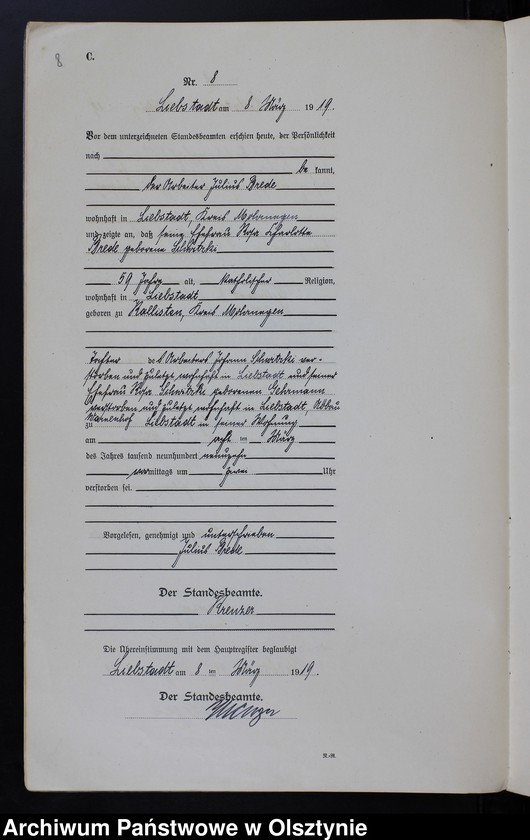 8
C.
Nr. 8
Liebstadt am 8. März 1919.
Vor dem unterzeichneten Standesbeamten erschien heute, der Persönlichkeit
nach
be kannt,
der Arbeiter Julius Brede
wohnhaft in Liebstadt, Kreis Mohrungen
und zeigte an, daß seine Ehefrau Rosa Charlotte
Brede geborene Schwitzki
59 Jahre alt, katholischer Religion,
wohnhaft in Liebstadt
geboren zu Kallisten, Kreis Mohrungen
Tochter des Arbeiters Johann Schwitzki ver-
storben und zuletzt wohnhaft in Liebstadt und seiner
Ehefrau Rosa Schwitzki geborenen Gehrmann
verstorben und zuletzt wohnhaft in Liebstadt, Abbau
zu Liebstadt in seiner Wohnung
am acht ten März
des Jahres tausend neunhundert neunzehn
vormittags um Uhr
verstorben sei.
Vorgelesen, genehmigt und unterschrieben
Julius Brede
Der Standesbeamte.
Krenzer
Die Übereinstimmung mit dem Hauptregister beglaubigt
Liebstadt am 8 ten März 1919.
Der Standesbeamte.
Archiwum Państwowe w Olsztynie